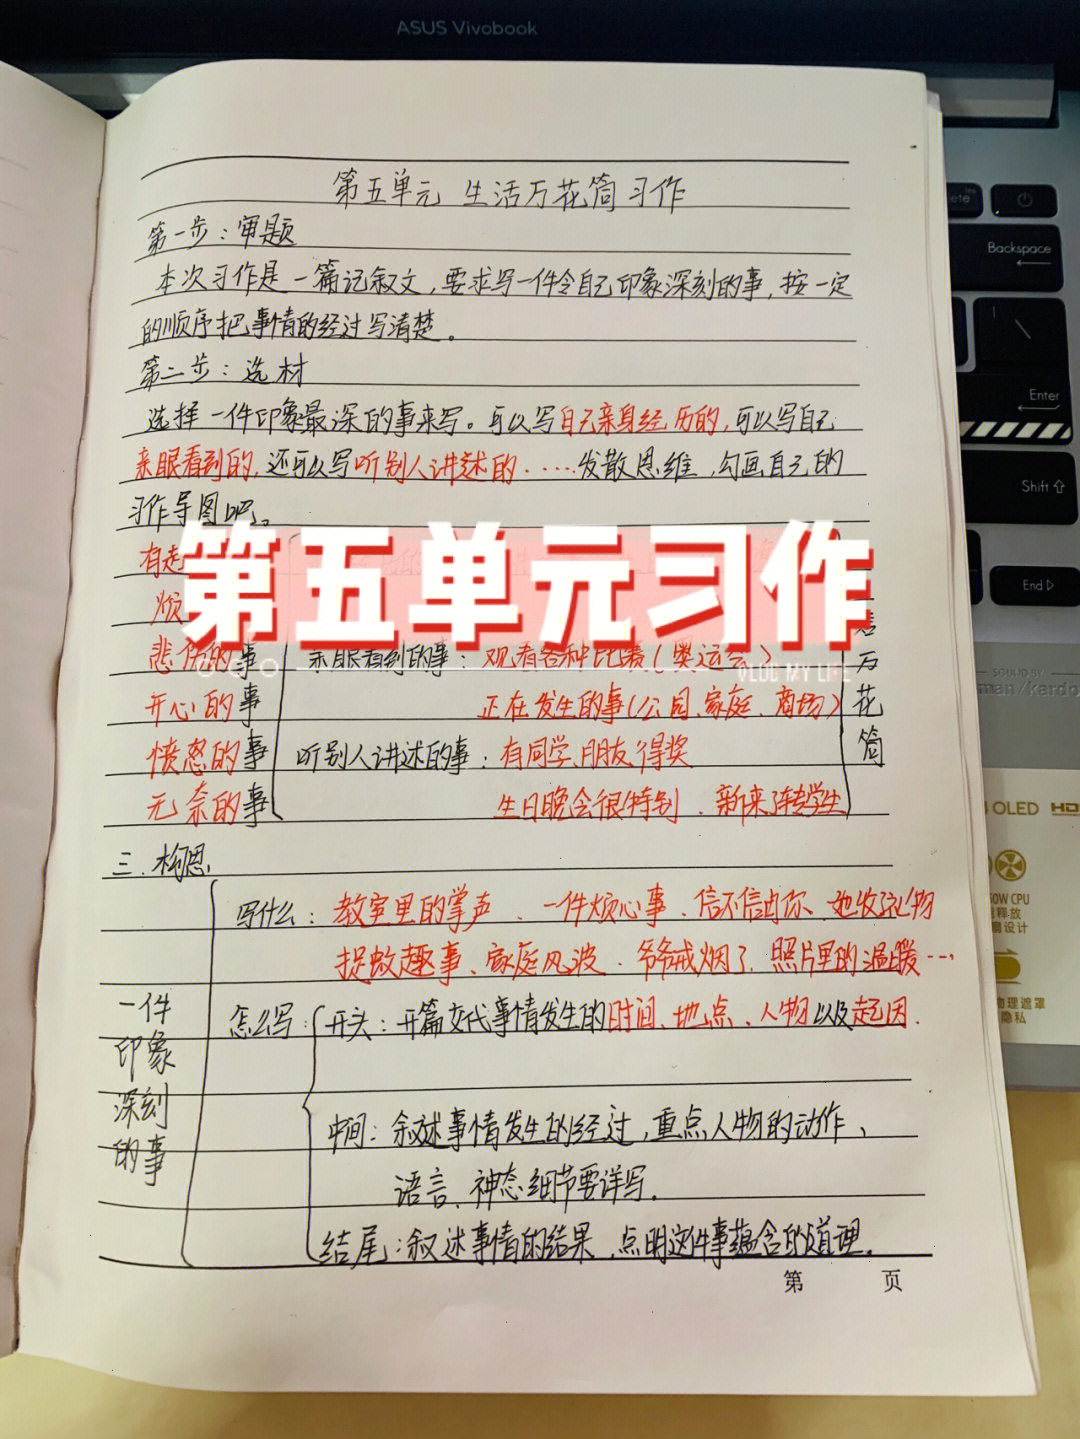 ASUS Vivobook
第五单元 生活万花筒习作
第一步：审题
本次习作是一篇记叙文，要求写一件令自己印象深刻的事，按一定
的顺序把事情的经过写清楚。
第二步：选材
选择一件印象最深的事来写。可以写自己亲身经历的，可以写自己
亲眼看到的，还可以写听别人讲述的……发散思维，勾画自己的
习作导图吧。
第五单元习作
VLOG MY LIFE
有趣
烦
悲伤的事
开心的事
愤怒的事
无奈的事
亲眼看到的事：观看各种比赛（奥运会）
正在发生的事（公园、家庭、商场）
听别人讲述的事：有同学、朋友得奖
生日晚会很特别、新来了转学生
活万花筒
三、构思
一件印象深刻的事
写什么：教室里的掌声、一件烦心事、信不信由你、她收了礼物
捉蚊趣事、家庭风波、爷爷戒烟了、照片里的温暖…
怎么写：开头：开篇交代事情发生的时间、地点、人物以及起因.
中间：叙述事情发生的经过，重点人物的动作、
语言、神态细节要详写.
结尾：叙述事情的结果，点明这件事蕴含的道理。
第 页
Backspace
Enter
Shift
End
OLED
HD
CPU
释放
扇设计
物理遮罩
隐私
man/kardo